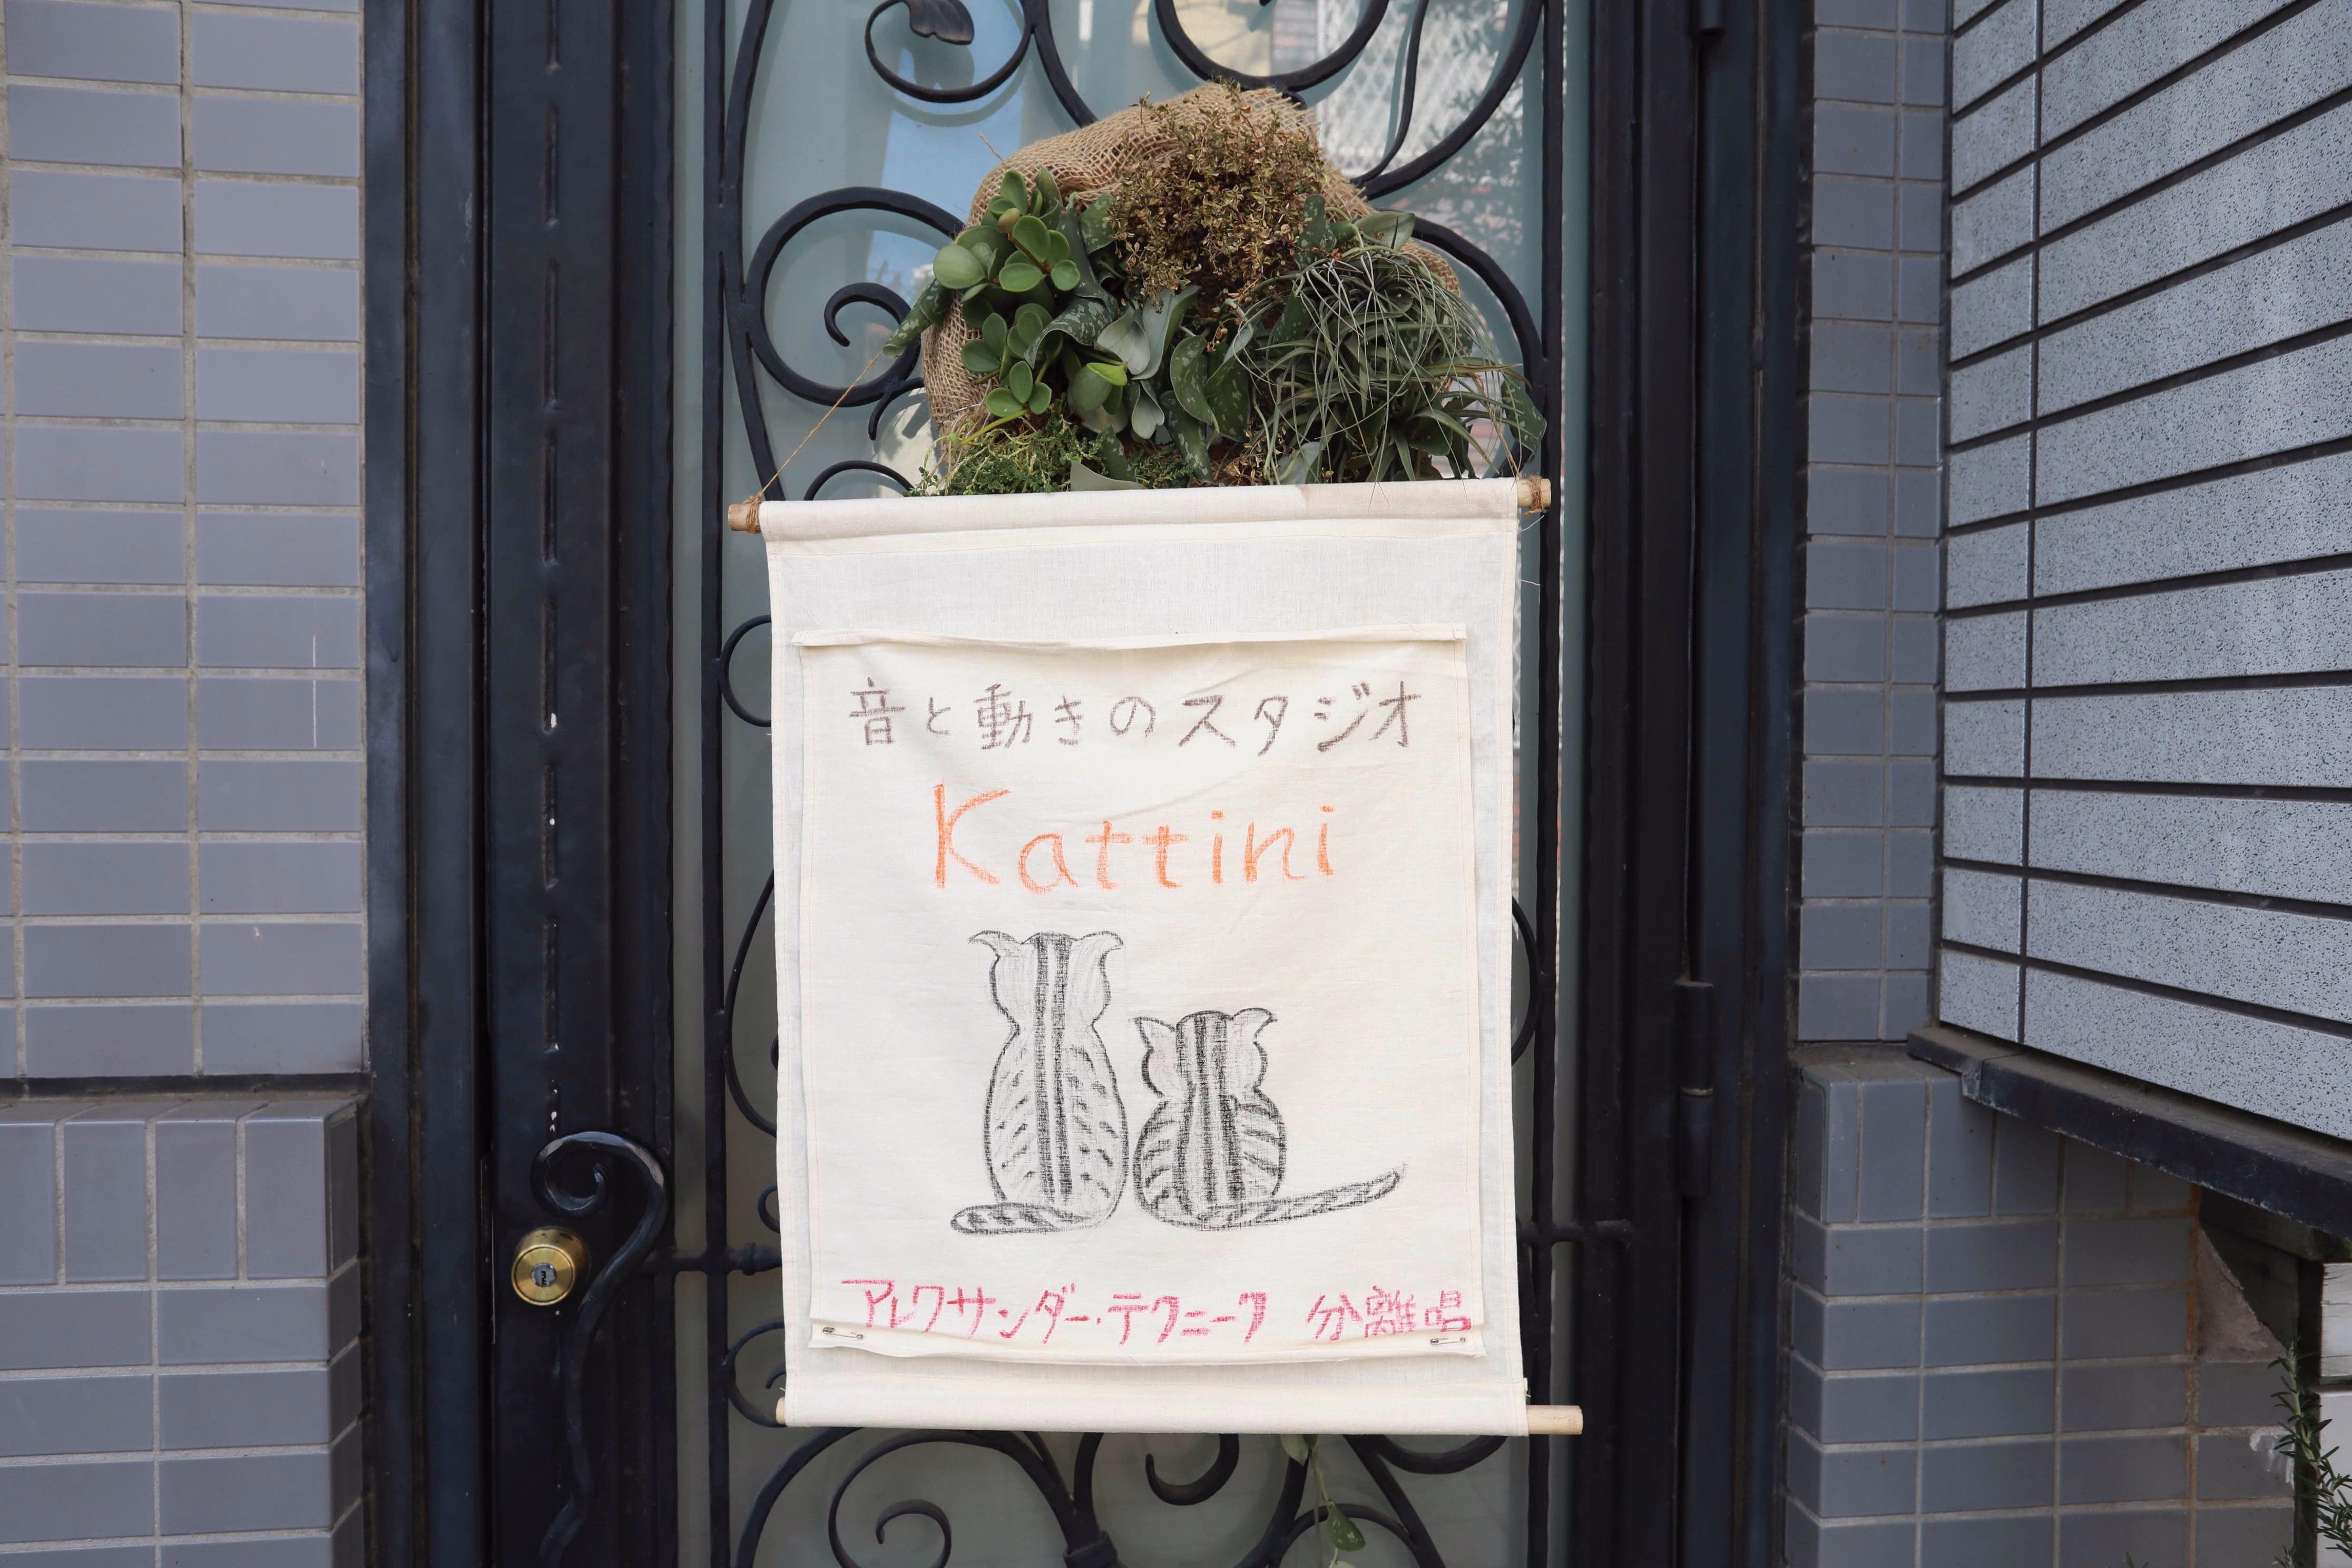 音と動きのスタジオ
Kattini
アレクサンダー・テクニーク 分離唱